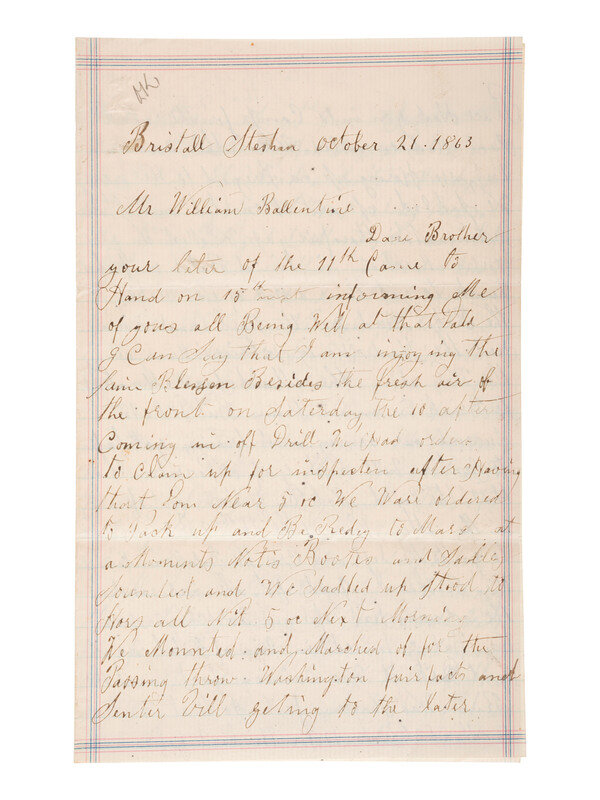 Bristall Steshen October 21. 1863
Mr William Ballentine
Dare Brother
your later of the 11th Came to
Hand on 15th inst informing Me
of yous all Being Well at that Date
I Can Say that I am injoying the
Saim Blessen Besides the fresh air of
the front. on Saturday the 10 after
Coming in off Drill We Had orders
to Clean up for inspecten after Having
that Don Near 5 oc We Ware ordered
to Pack up and Be Redey to March at
a Moments Notis Bootes and Sadles
Sounded and We Sadled up stood to
Hors all Nit 5 oc Next Morning
We Mounted and Marched of for the
Passing throw Washington fairfacts and
Senter Vill geting to the later